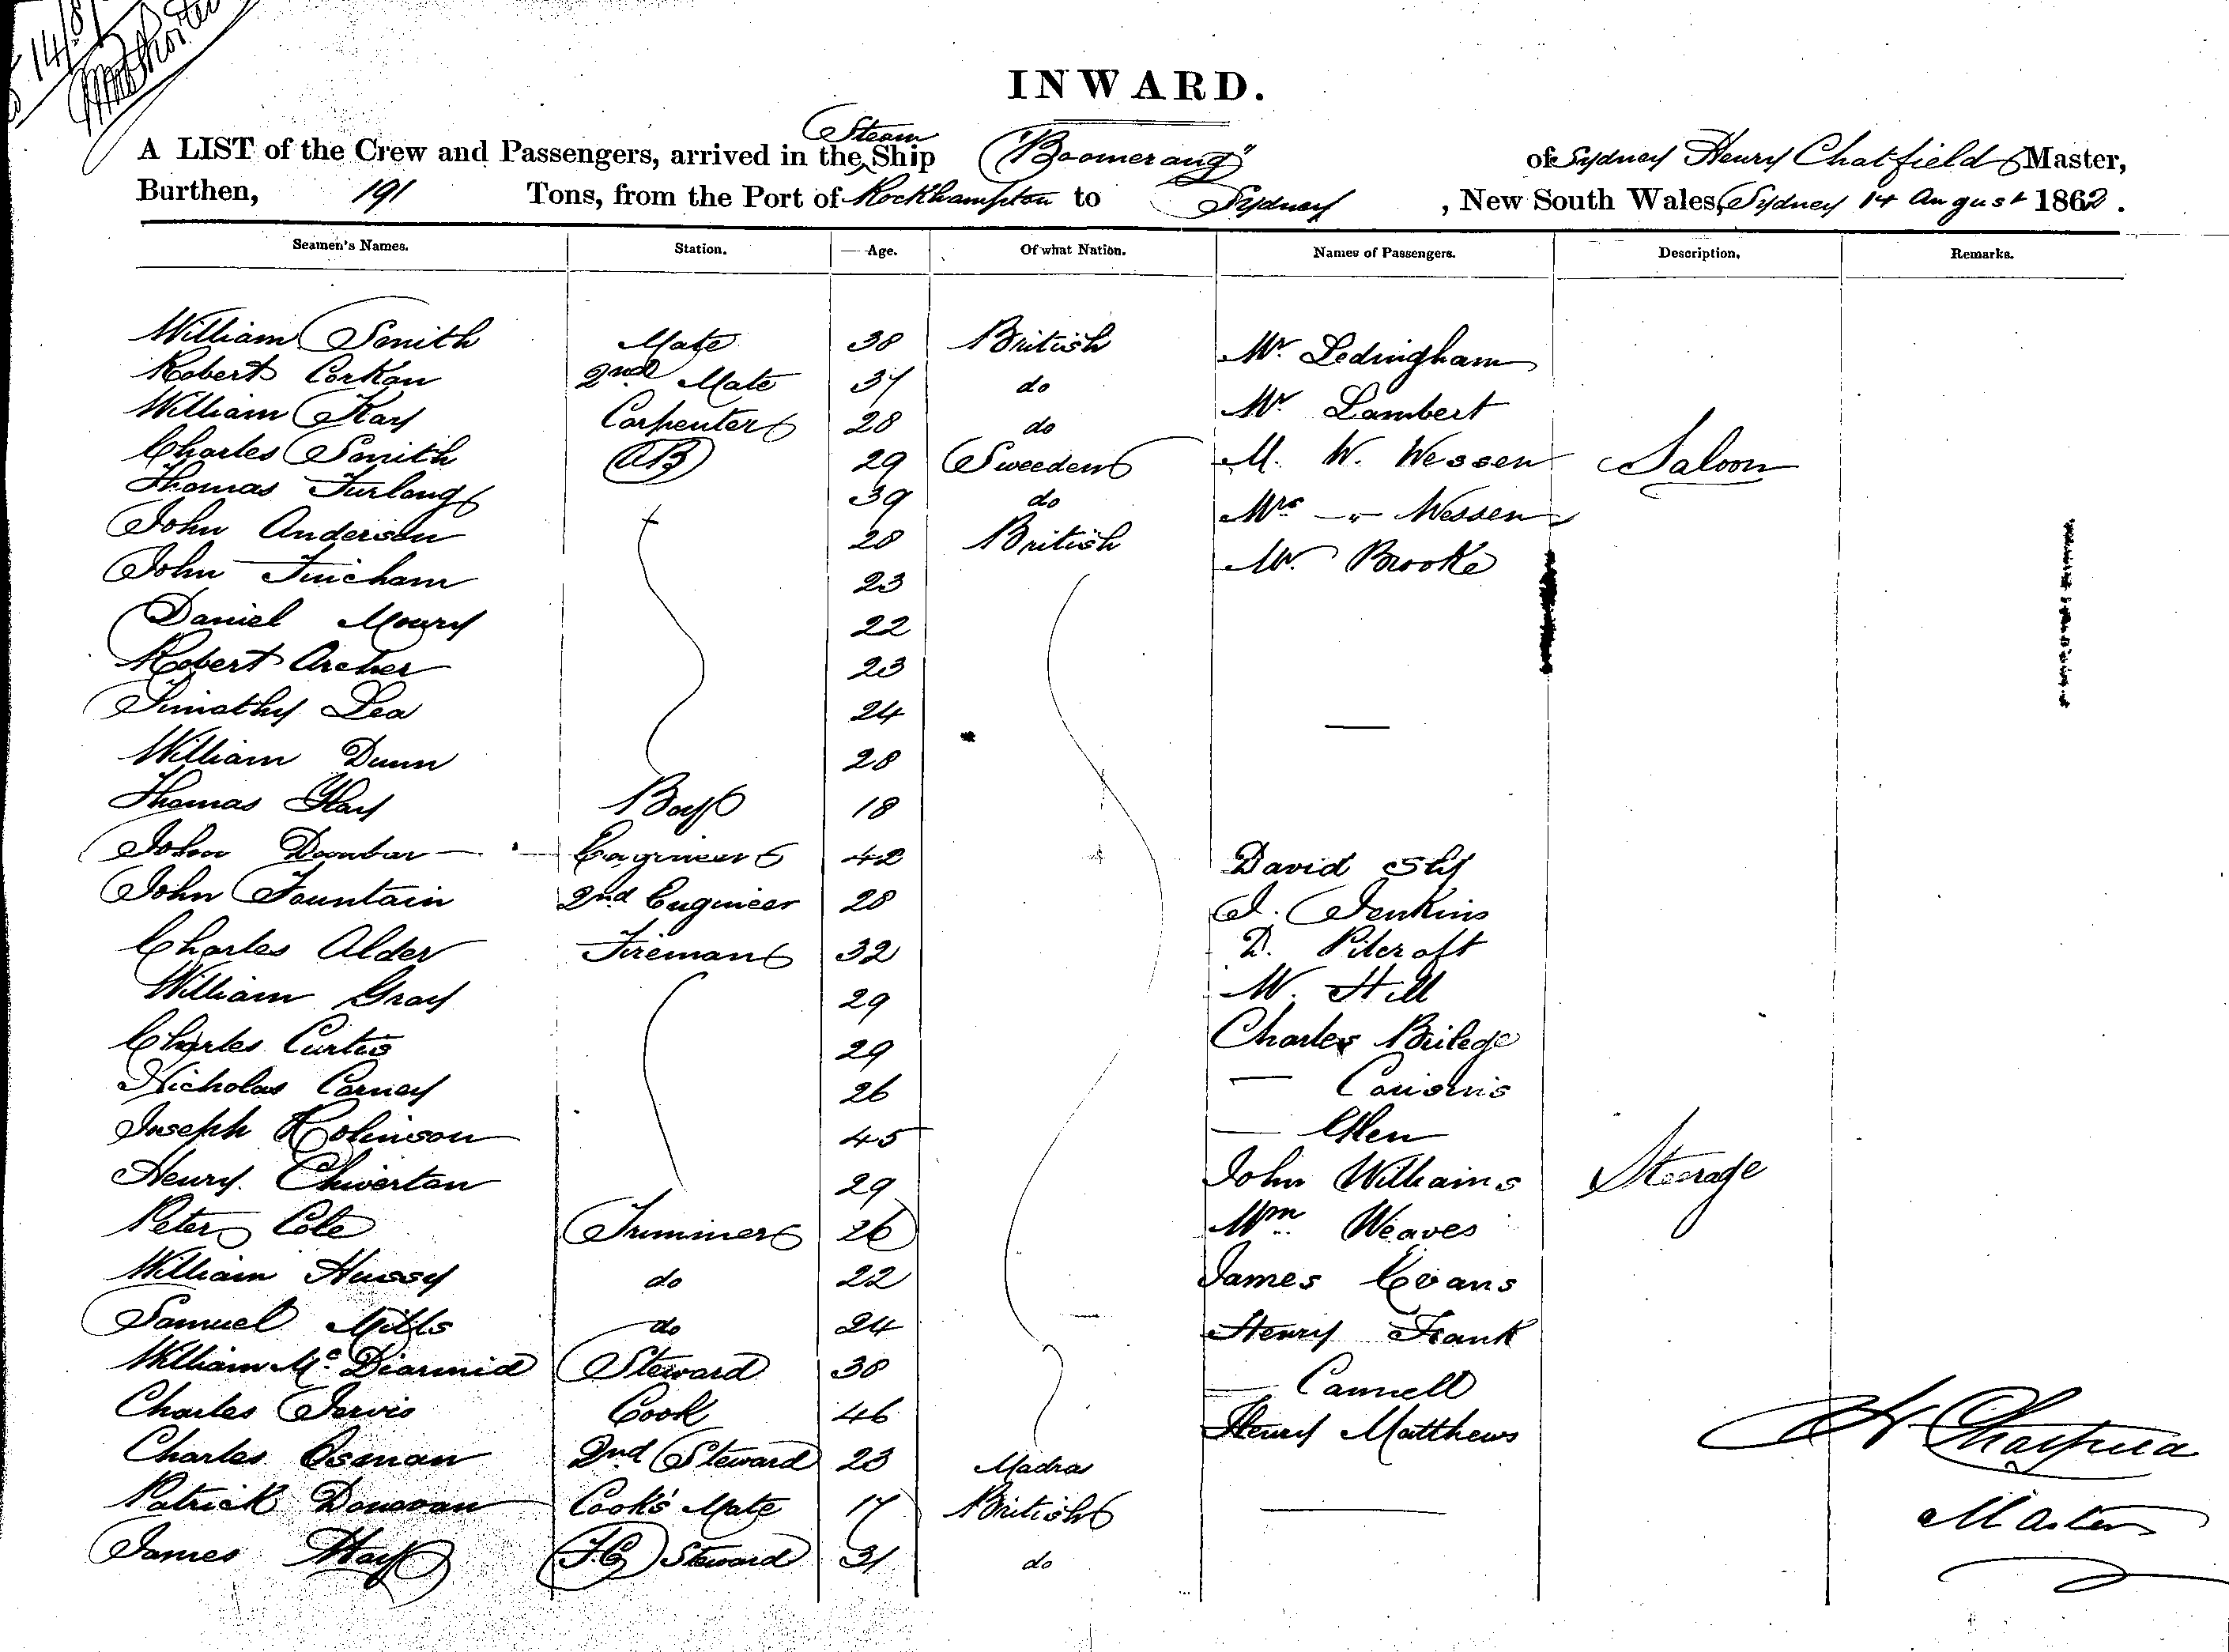 INWARD.
A LIST of the Crew and Passengers, arrived in the Steam Ship "Boomerang" of Sydney Henry Chatfield Master,
Burthen, 191 Tons, from the Port of Rockhampton to Sydney, New South Wales, Sydney 14 August 1862.
Seamen's Names. Station. Age. Of what Nation. Names of Passengers. Description. Remarks.
William Smith Mate 38 British Mr. Ledingham
Robert Corkan 2nd Mate 37 do
William Kay Carpenter 28 do Mr. Lambert
Charles Smith AB 29 Sweeden M. W. Wessen Saloon
Thomas Furlong 39 do Mrs — " — Wessen
John Anderson 28 British
John Fincham 23 Mr. Brooke
Daniel 22
Robert Archer 23
Timothy Lea 24 —
William Dunn 28
Thomas Hay Boy 18
John Dunbar Engineer 42 David Sly
John Fountain 2nd Engineer 28 J. Jenkins
Charles Alder Fireman 32 D. Pitcroft
William Gray 29 W. Hill
Charles Curtis 29 Charles
Nicholas Carney 26 —
Joseph Robinson 45 —
Henry Chiverton 29 John Williams Steerage
Peter Cole Trimmer 26 Wm Weaves
William Hussey do 22 James Evans
Samuel Mills do 24 Henry Frank
William Mc Diarmid Steward 38 — Cannell
Charles Jervis Cook 46 Henry Matthews
Charles Osman 2nd Steward 23 Madras
Patrick Donovan Cook's Mate 17 British —
James Hay F.C. Steward 31 do
Master